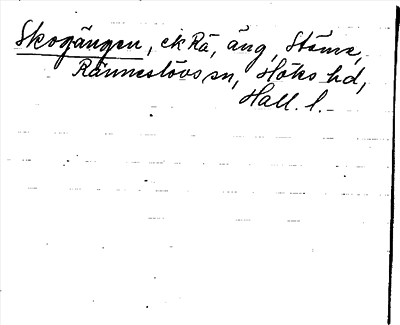 Skogängen, ekRä, äng, Stäme,
Ränneslövs sn, Höks hd,
Hall. l.